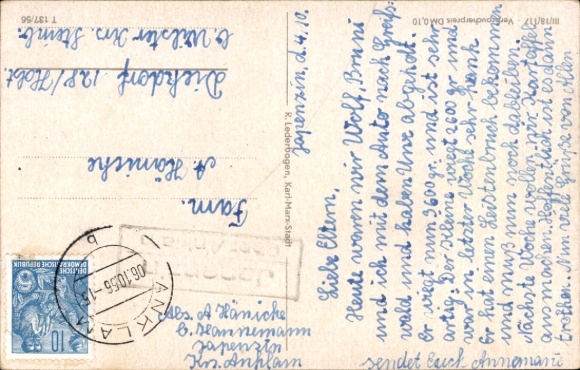 Japenzin, d. 4.10.
Liebe Eltern,
Heute waren wir Wolf, Bruni
und ich mit dem Auto nach Greifs-
wald und haben Uwe abgeholt.
Er wiegt nun 3600 gr. und ist sehr
artig. Der Kleine wiegt 2600 gr und
war in letzter Woche sehr krank
Er hat einen Leistenbruch bekommen
und muß nun noch dableiben.
Nächste Woche wollen wir Kartoffeln
ausmachen. Hoffentlich ist es dann
trocken. Nun viele Grüße von Allen
sendet Euch Annemarie
R. Lederbogen, Karl-Marx-Stadt
III/18/117 Verbraucherpreis DM 0,10
T 137/56
Fam.
A. Hänicke
Diekdorf 128/Holst.
b. Wilster Krs. Steinb.
DEUTSCHE
DEMOKRATISCHE REPUBLIK
10
ANKLAM
06.10.56
b
Abs. A Hänicke
b. Hannemann
Japenzin
Krs. Anklam